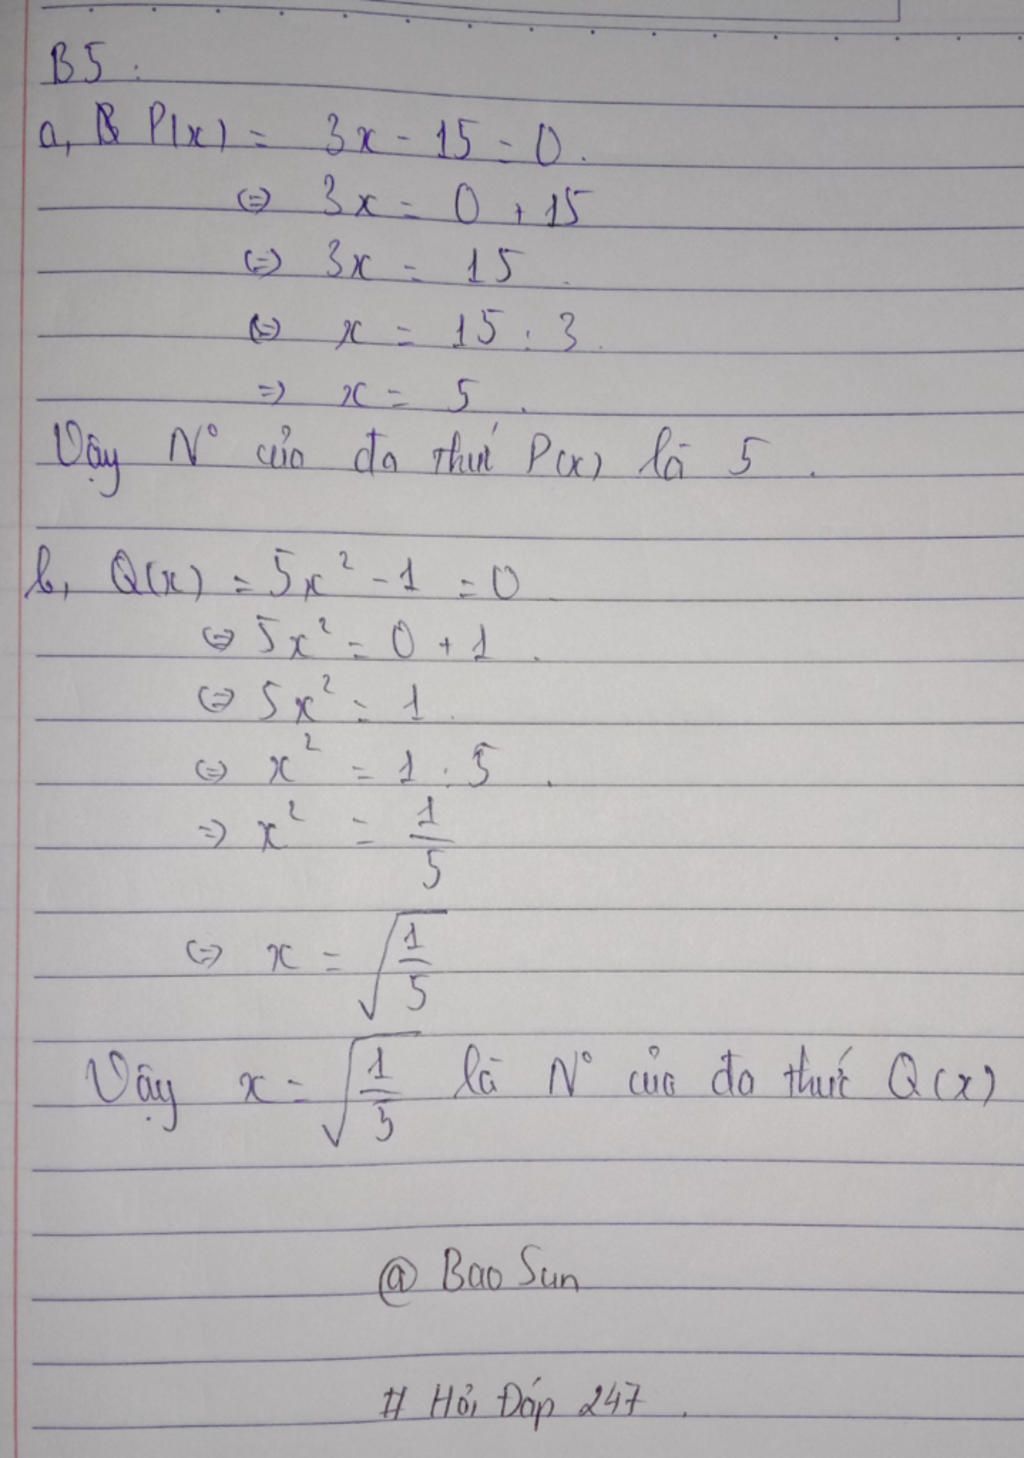 B5:
a, P(x) = 3x - 15 = 0.
(=) 3x = 0 + 15
(=) 3x = 15.
(=) x = 15 : 3.
=) x = 5.
Vậy N° của đa thức P(x) là 5.
b, Q(x) = 5x² - 1 = 0
(=) 5x² = 0 + 1.
(=) 5x² = 1.
(=) x² = 1 : 5.
=) x² = 1/5
(=) x = √(1/5)
Vậy x = √(1/5) là N° của đa thức Q(x)
@ Bao Sun
# Hỏi Đáp 247.